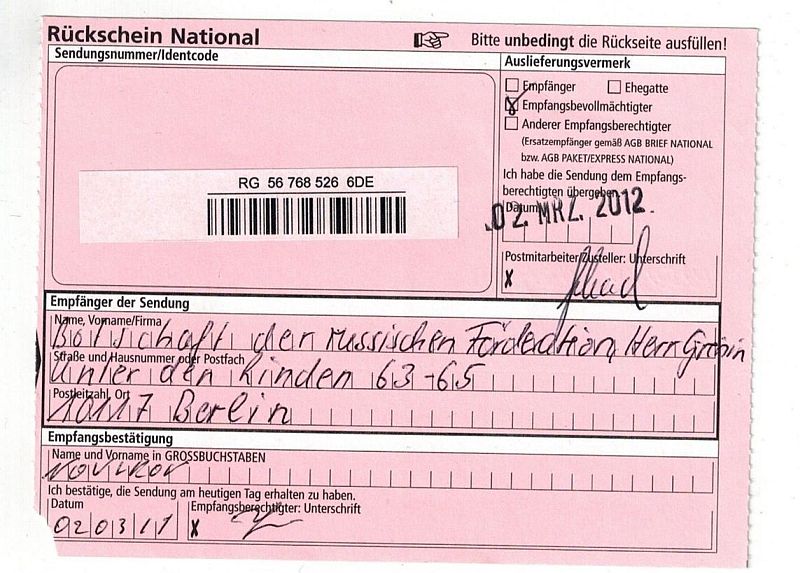 Rückschein National
Bitte unbedingt die Rückseite ausfüllen!
Sendungsnummer/Identcode
RG 56 768 526 6DE
Auslieferungsvermerk
Empfänger Ehegatte
Empfangsbevollmächtigter
Anderer Empfangsberechtigter
(Ersatzempfänger gemäß AGB BRIEF NATIONAL
bzw. AGB PAKET/EXPRESS NATIONAL)
Ich habe die Sendung dem Empfangs-
berechtigten übergeben
Datum
02. MRZ. 2012
Postmitarbeiter/Zusteller: Unterschrift
X
Empfänger der Sendung
Name, Vorname/Firma
Botschaft der russischen Förderation, Herr
Straße und Hausnummer oder Postfach
Unter den Linden 63-65
Postleitzahl, Ort
10117 Berlin
Empfangsbestätigung
Name und Vorname in GROSSBUCHSTABEN
NOVIKOV
Ich bestätige, die Sendung am heutigen Tag erhalten zu haben.
Datum
Empfangsberechtigter: Unterschrift
020311
X